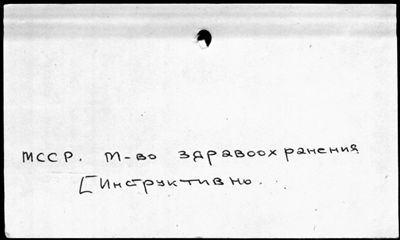 МССР. М-во здравоохранения
[Инструктивно..